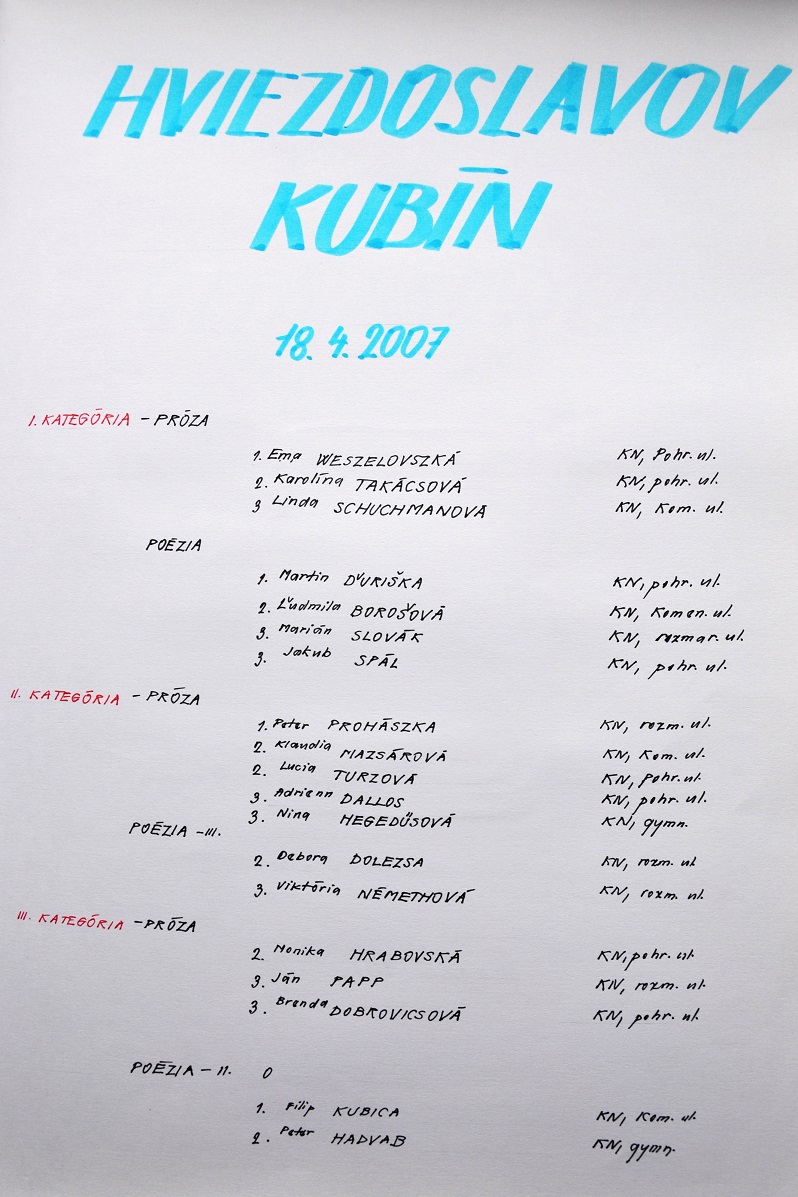 HVIEZDOSLAVOV
KUBÍN
18. 4. 2007
I. KATEGÓRIA - PRÓZA
1. Ema WESZELOVSZKÁ KN, Pohr. ul.
2. Karolína TAKÁCSOVÁ KN, pohr. ul.
3 Linda SCHUCHMANOVÁ KN, Kom. ul.
POÉZIA
1. Martin ĎURIŠKA KN, pohr. ul.
2. Ľudmila BOROŠOVÁ KN, Komen. ul.
3. Marián SLOVÁK KN, rozmar. ul.
3. Jakub SPÁL KN, pohr. ul.
II. KATEGÓRIA - PRÓZA
1. Peter PROHÁSZKA KN, rozm. ul.
2. Klaudia MAZSÁROVÁ KN, Kom. ul.
2. Lucia TURZOVÁ KN, Pohr. ul.
3. Adrienn DALLOS KN, pohr. ul.
3. Nina HEGEDŰSOVÁ KN, gymn.
POÉZIA - III.
2. Debora DOLEZSA KN, rozm. ul.
3. Viktória NÉMETHOVÁ KN, rozm. ul.
III. KATEGÓRIA - PRÓZA
2. Monika HRABOVSKÁ KN, pohr. ul.
3. Ján PAPP KN, rozm. ul.
3. Brenda DOBROVICSOVÁ KN, pohr. ul.
POÉZIA - II. 0
1. Filip KUBICA KN, Kom. ul.
2. Peter HADVAB KN, gymn.